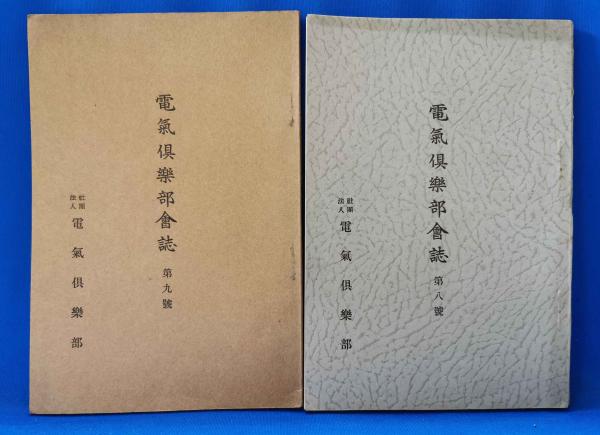 電氣倶樂部會誌 第八號
社團法人 電氣倶樂部
電氣倶樂部會誌 第九號
社團法人 電氣倶樂部